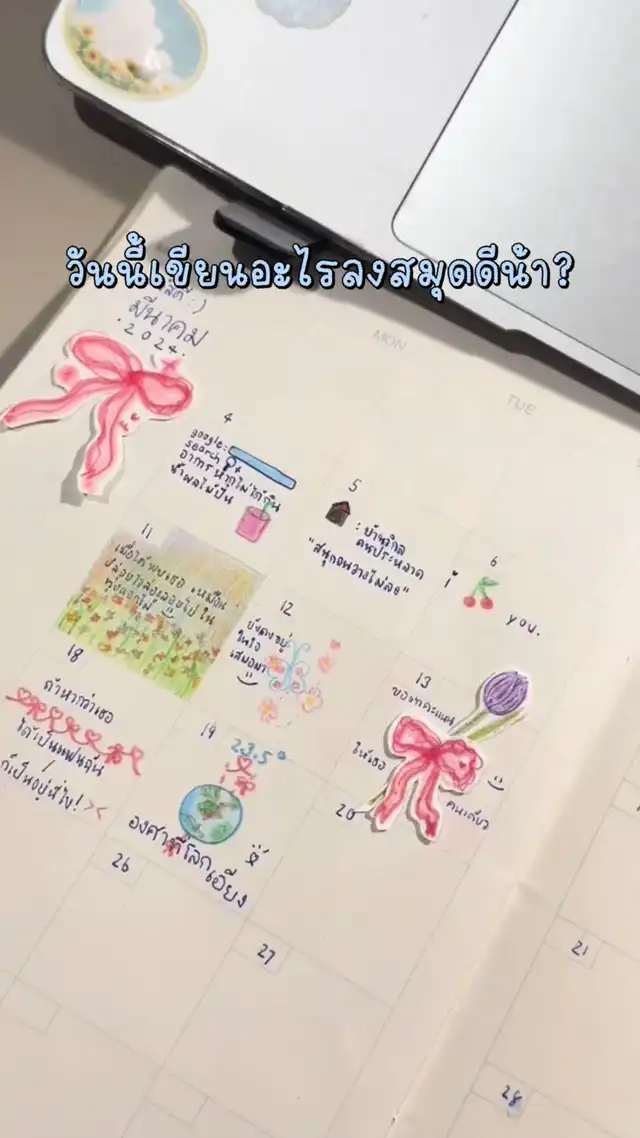 วันนี้เขียนอะไรลงสมุดดีน้า?
:)
มีนาคม
.2024.
MON
TUE
4
google:
search
อาการน้ำภูไม่ได้กิน
น้ำผลไม้ปั่น
5
: บ้านไกล
คนประหลาด
"สนุกจนวางไม่ลง"
6
i
you.
11
เมื่อได้พบเธอ เหมือน
ปล่อยใจล่องลอยไป ใน
ทุ่งดอกไม้
12
ยังคงอยู่
ในใจ
เสมอมา
13
ขอแกคะแนน
ให้เธอ
คนเดียว
18
ถ้าหากว่าเธอ
ได้เป็นแฟนฉัน
ก็เป็นอยู่นี่ไง! ><
19
23.5°
องศาที่โลกเอียง
20
26
27
21
28